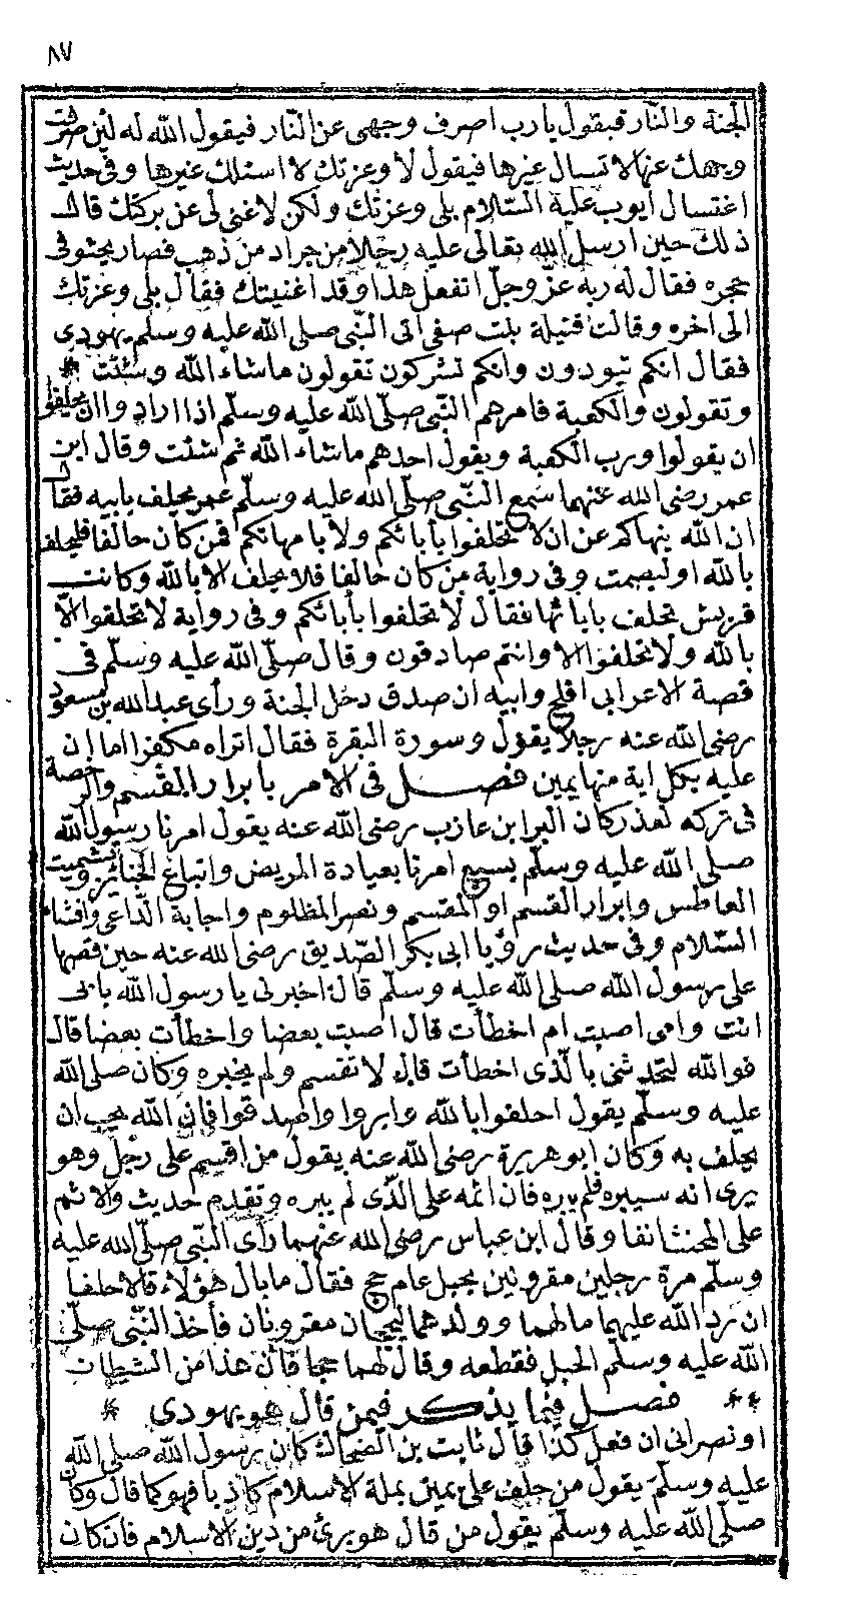 ٨٧
الجنة والنار فيقول يارب اصرف وجهى عن النار فيقول الله له لئن صرفت
وجهك عنها لا تسال غيرها فيقول لا وعزتك لا اسئلك غيرها وفى حديث
اغتسال ايوب علية السّلام بلى وعزتك ولكن لاغنى لى عن بركتك قال
ذلك حين ارسل الله تعالى عليه رجلا من جراد من ذهب فصار يحثو فى
حجره فقال له ربه عزّ وجلّ اتفعل هذا وقد اغنيتك فقال بلى وعزتك
الى اخره وقالت قتيلة بنت صفى اتى النّبى صلى الله عليه وسلم يهودى
فقال انكم تنددون وانكم تشركون تقولون ماشاء الله وشئت *
وتقولون والكعبة فامرهم النّبى صلّى الله عليه وسلّم اذا ارادوا ان يحلفوا
ان يقولوا ورب الكعبة ويقول احدهم ماشاء الله ثم شئت وقال ابن
عمر رضى الله عنهما سمع النّبى صلّى الله عليه وسلّم عمر يحلف بابيه فقال
ان الله ينهاكم عن ان لا تحلفوا بأبائكم ولا بامهاتكم فمن كان حالفا فليحلف
بالله اوليصمت وفى رواية من كان حالفا فلا يحلف الا بالله وكانت
قريش تحلف باباتها فقال لا تحلفوا بأبائكم وفى رواية لا تحلفوا الاّ
بالله ولا تحلفوا الا وانتم صادقون وقال صلّى الله عليه وسلّم فى
قصة الاعرابى افلح وابيه ان صدق دخل الجنة ورأى عبدالله بن مسعود
رضى الله عنه رجلا يقول وسورة البقرة فقال اتراه مكفرا اما ان
عليه بكل اية منها يمين فصـــل فى الامر بابرار القسم والرخصة
فى تركه لعذر كان البرا ابن عازب رضى الله عنه يقول امرنا رسول الله
صلى الله عليه وسلّم بسبع امرنا بعيادة المريض واتباع الجنائز وتشميت
العاطس وابرار القسم او المقسم ونصر المظلوم واجابة الدّاعى وافشاء
السّلام وفى حديث رؤيا ابى بكر الصّديق رضى الله عنه حين قصها
على رسول الله صلى الله عليه وسلّم قال اخبرنى يا رسول الله بابى
انت وامى اصبت ام اخطأت قال اصبت بعضا واخطأت بعضا قال
فوالله لتحدثنى بالّذى اخطأت قال لا تقسم ولم يخبره وكان صلى الله
عليه وسلّم يقول احلفوا بالله وابروا واصدقوا فان الله يحب ان
يحلف به وكان ابو هريرة رضى الله عنه يقول من اقسم على رجل وهو
يرى انه سيبره فلم يبره فان اثمه على الّذى لم يبره وتقدم حديث والاثم
على المحنث انفا وقال ابن عباس رضى الله عنهما رأى النّبى صلّى الله عليه
وسلّم مرة رجلين مقرونين بحبل عام حج فقال ما بال هؤلاء قالا حلفا
ان رد الله عليهما مالهما وولدهما ليحجان مقرونان فأخذ النّبى صلّى
الله عليه وسلّم الحبل فقطعه وقال لهما حجا فان هذا من الشيطان
** فصـــل فيما يذكر فيمن قال هو يهودى *
او نصرانى ان فعل كذا قال ثابت بن الضحاك كان رسول الله صلى الله
عليه وسلّم يقول من حلف على يمين بملة الاسلام كاذبا فهو كما قال وكان
صلّى الله عليه وسلّم يقول من قال هو برئ من دين الاسلام فان كان